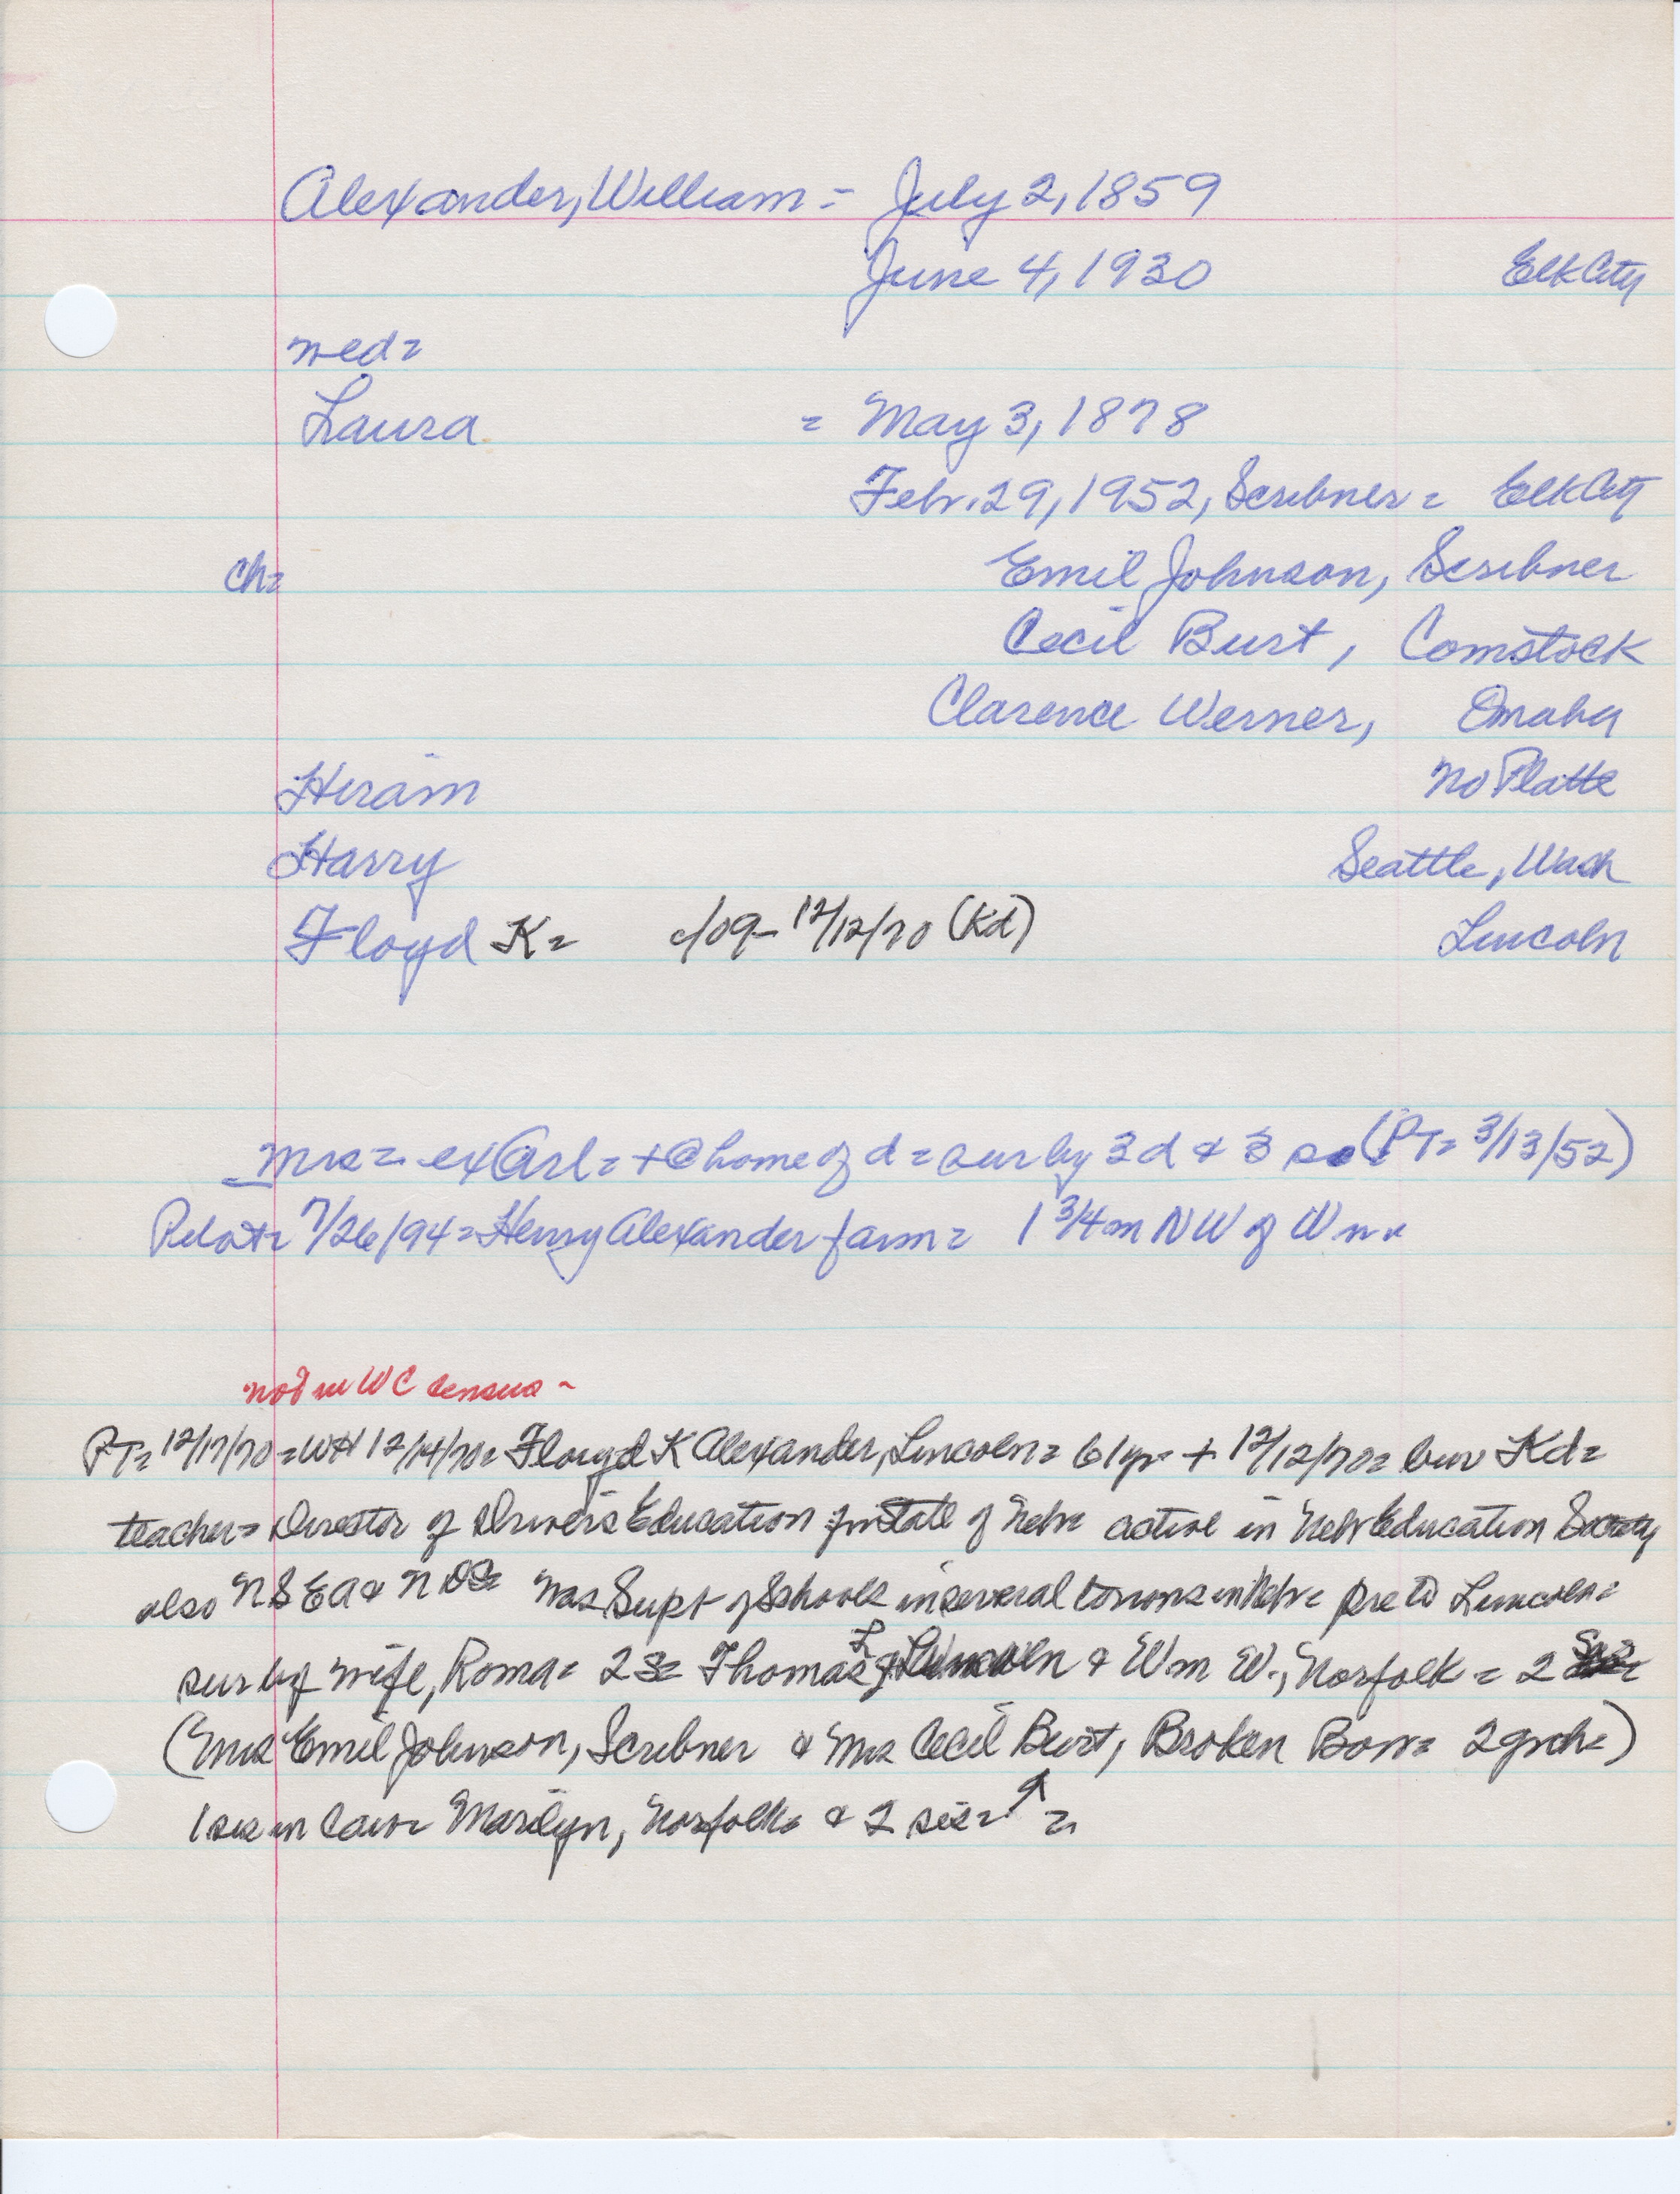 Alexander, William = July 2, 1859
June 4, 1930 Elk City
med=
Laura = May 3, 1878
Febr. 29, 1952, Scribner = Elk City
ch= Emil Johnson, Scribner
Cecil Burt, Comstock
Clarence Werner, Omaha
Hiram No Platte
Harry Seattle, Wash
Floyd K= c/09- 12/12/70 (Kd) Lincoln
Mrs = ex Arl = + @ home of d = sur by 3 d & 3 so (PT= 3/13/52)
Pilot= 7/26/94 = Henry Alexander farm = 1 3/4 m NW of
not in WC census -
PT= 12/17/70 = WH 12/14/70= Floyd K Alexander, Lincoln = 61 yr + 12/12/70= bur Kd=
teacher= Director of Drivers Education for State of Nebr active in Nebr Education Society
also NSEA & Was Supt of Schools in several towns in Nebr = pre to Lincoln=
sur by wife, Roma= 2 S= Thomas Lincoln & Wm W., Norfolk = 2
(Mrs Emil Johnson, Scribner & Mrs Cecil Burt, Broken Bow= 2 grch=)
1 sis in law= Marilyn, Norfolk= & 2 sis= ↑ =